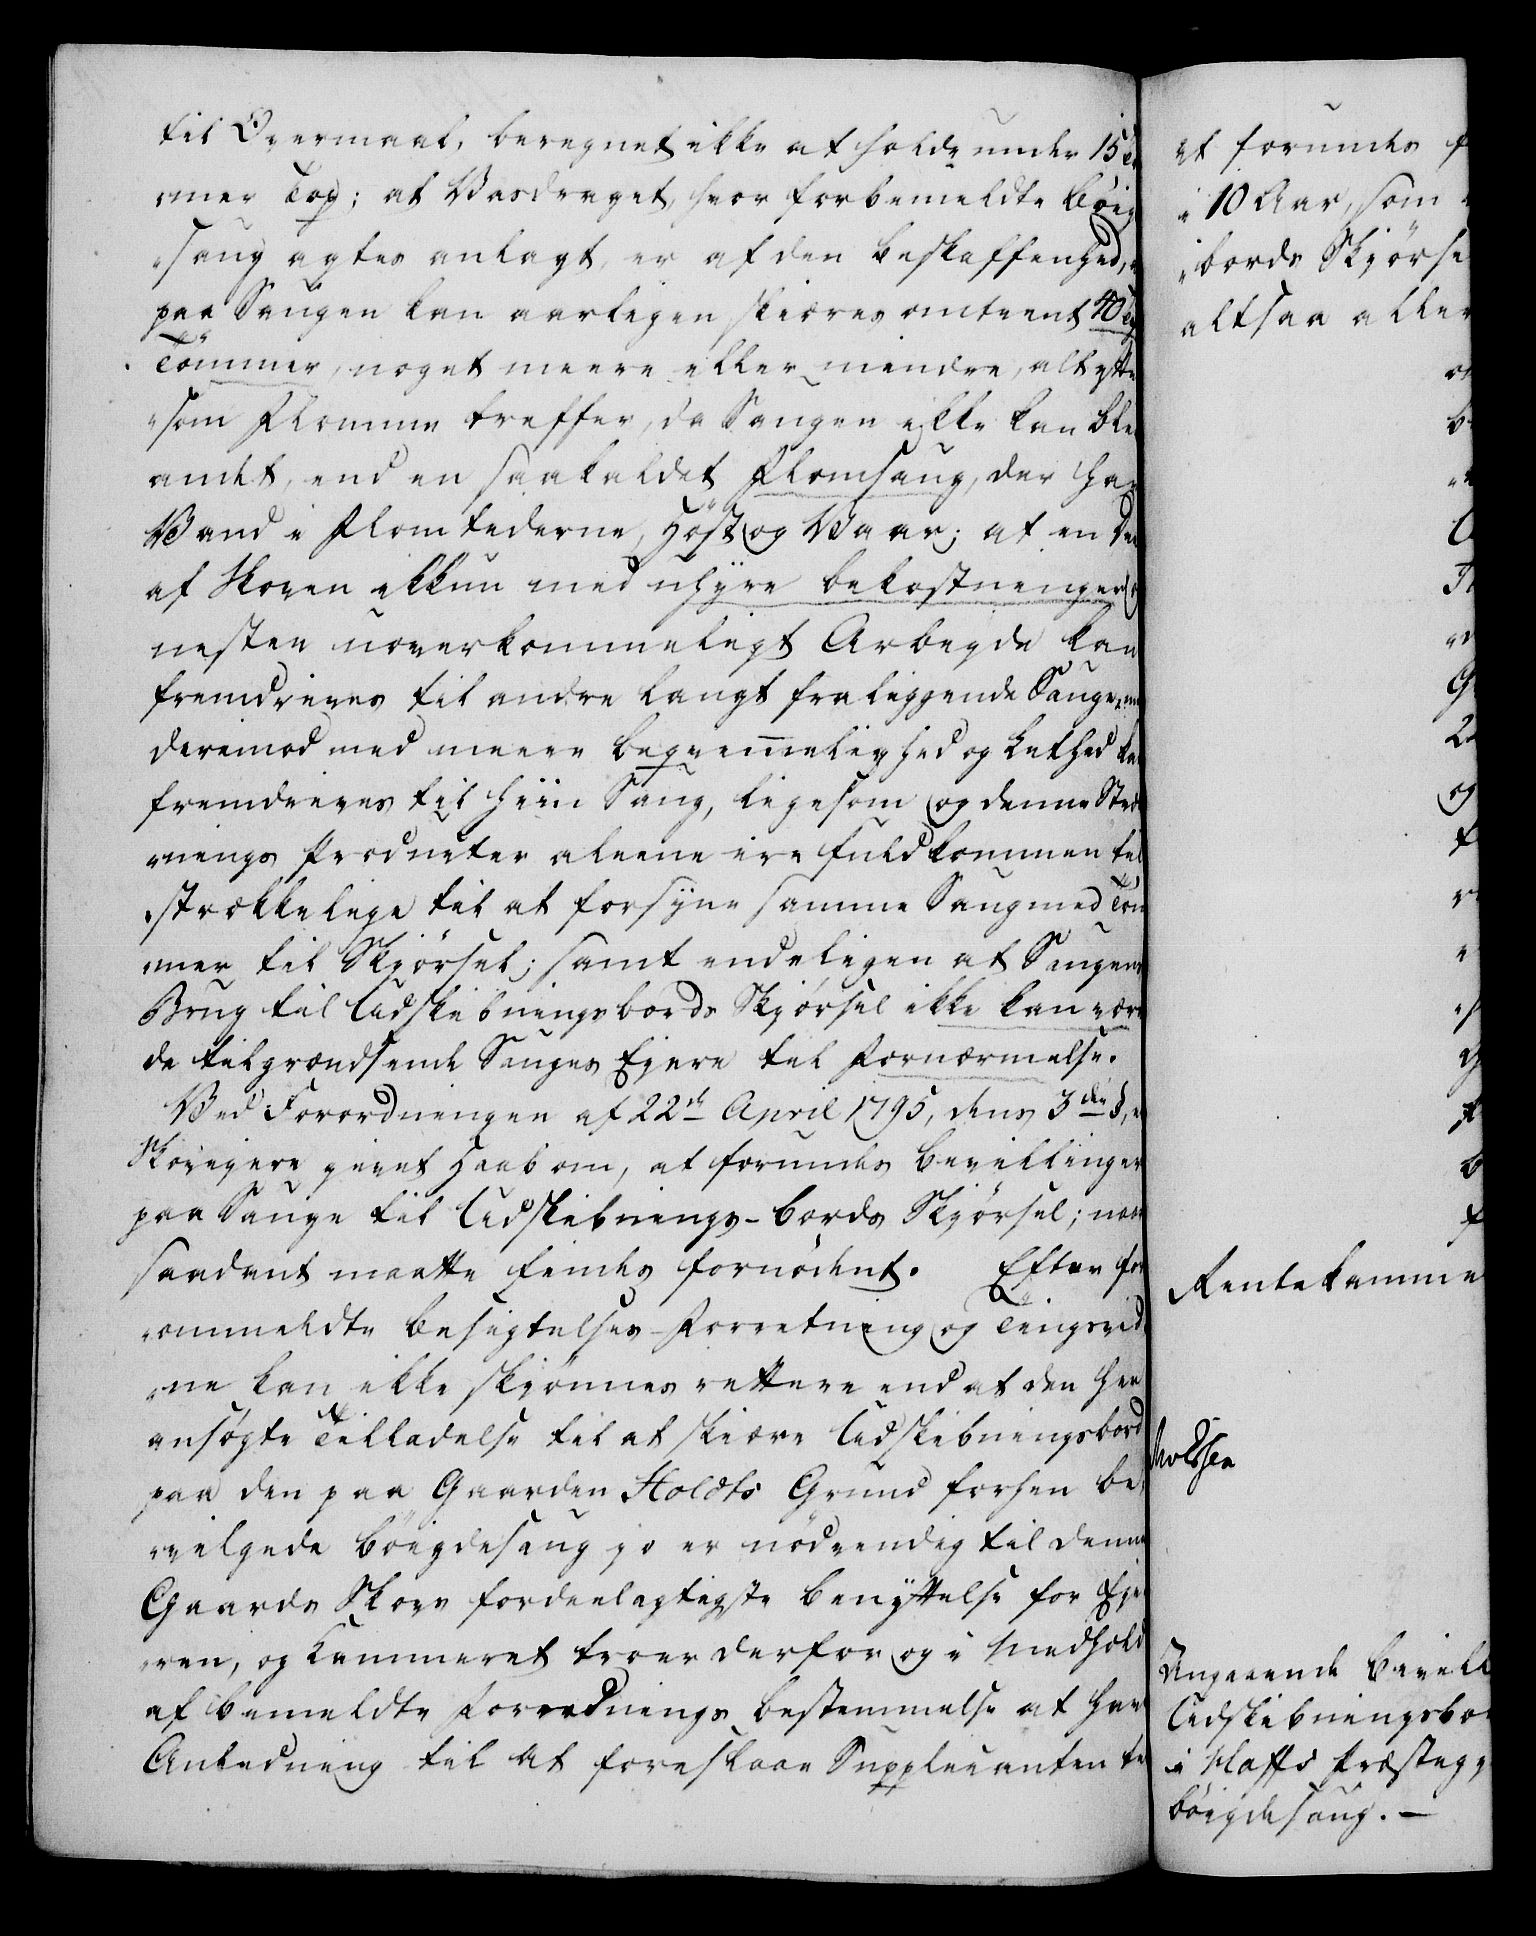 til Overmaal, beregnet ikke at holde under 15
mer Top; at Vasdraget, hvor forbemeldte Böig
„saug agtes anlagt, er af den beskaffenhed,
paa Saugen kan aarligen skiæres omtrent 40
Tömmer, noget meere eller mindre, alt efter
„som Flommen treffer, da Saugen ikke kan ble
andet, end en saakaldet Flomsaug, der har
Vand i Flomtiderne, Höst og Vaar; at en Deel
af Skoven ikkun med uhÿre bekostninger
nesten uoverkommeligt Arbeyde kan
fremdrives til andre langt fraliggende Sauge,
derimod med meere beqvemmelighed og Lethed
fremdrives til hiin Saug, ligesom og denne
„nings Producter aleene ere fuldkommen til
„strækkelige til at forsÿne samme Saug med Töm
„mer til Skjörsel; samt endeligen at Saugens
Brug til Udskibningsbords Skjörsel ikke kan være
de tilgrændsende Sauges Ejere til Fornærmelse.
Ved Forordningen af 22de April 1795, dens 3die §,
Skovejere givet Haab om, at forundes bevillinger
paa Sauge til Udskibnings-bords Skjörsel; naar
saadant maatte findes fornødent. Efter for
„ommeldte besigtelses-Forretning og Tingsvid
„ne kan ikke skjönnes rettere end at den her
ansøgte Tilladelse til at skiære Udskibningsbord
paa den paa Gaarden Holdts Grund forhen be
„vilgede böigdesaug jo er nödvendig til denne
Gaards Skovs fordeelagtigste benÿttelse for Eje
„ren, og Kammeret troer derfor og i Medhold
af bemeldte Forordnings bestemmelse at have
Anledning til at foreslaae Supplicanten
at forundes
i 10 Aar, som
„bords Skjörse
altsaa aller
og
Rentekamme
Angaaende bevill
Udskibningsbor
i Præsteg
böigdesaug. –